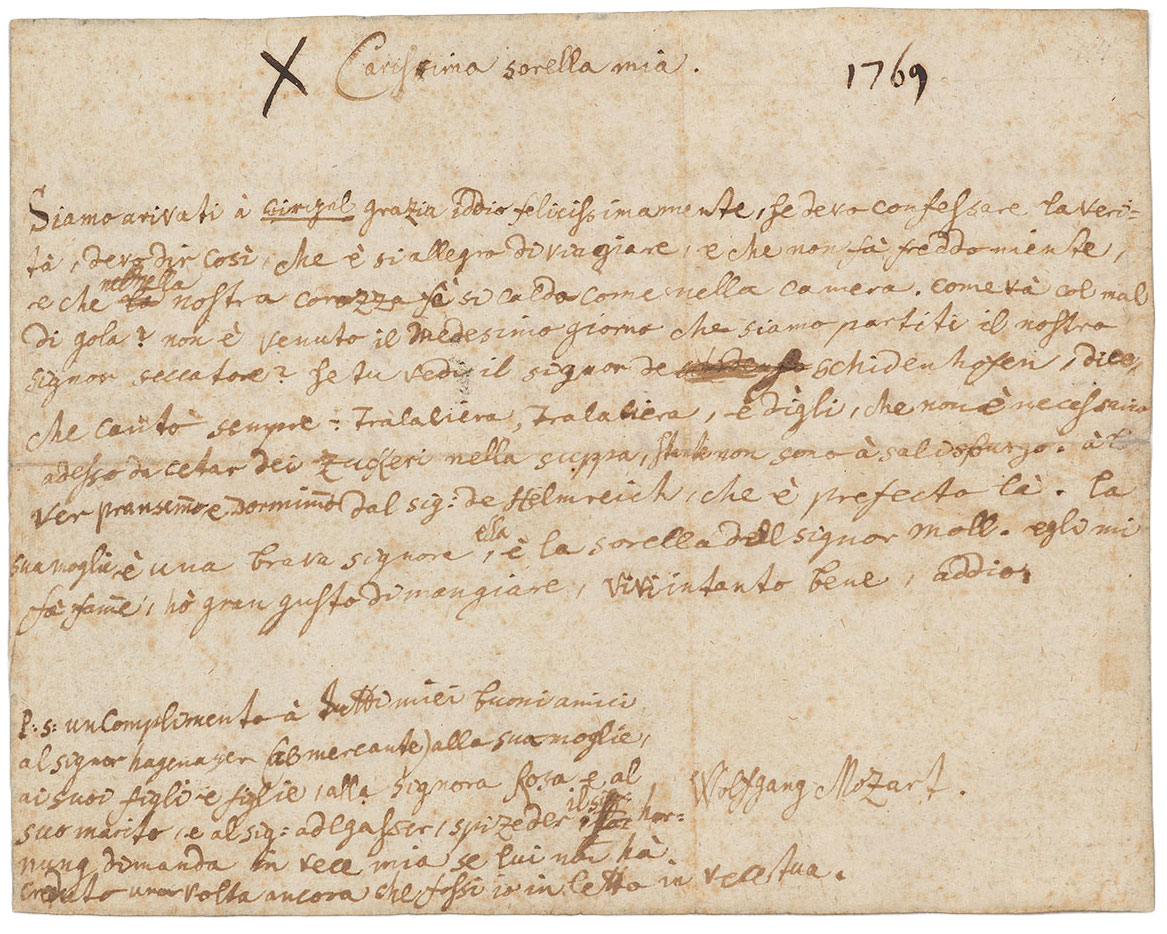 X Carissima sorella mia. 1769
Siamo arivati à wirgel grazia iddio felicissimamente, se devo confessare la veri=
tà, devo dir così, che è si allegro di viagiare, e che non fà freddo niente,
e che nella nostra carozza fà si caldo come nella camera. come và col mal
di gola? non è venuto il medesimo giorno che siamo partiti il nostro
signor seccatore? se tu vedi il signor de schidenhofen, dice,
che cantò sempre: Tralaliera, Tralaliera, e digli, che non è necessario
adesso da cetar dei zuccheri nella suppa, non sono à salisburgo. à lo
ver pransemo e dormimo dal sig: de Helmreich, che è prefecto là. la
sua moglie è una brava signora, ella è la sorella del signor moll. egli mi
fà fame, hò gran gusto di mangiare, vivi intanto bene, addio.
P: S: un complimento à tutti miei buoni amici
al signor hagenauer (il mercante) alla sua moglie,
ai suoi figli è figlie, alla signora Rosa e al
suo marito, e al sig: adlgasser, spizeder, il sig: hor=
nung dimanda in vece mia se lui non hà
creduto una volta ancora che fossi io in letto in vece tua.
Wolfgang Mozart.